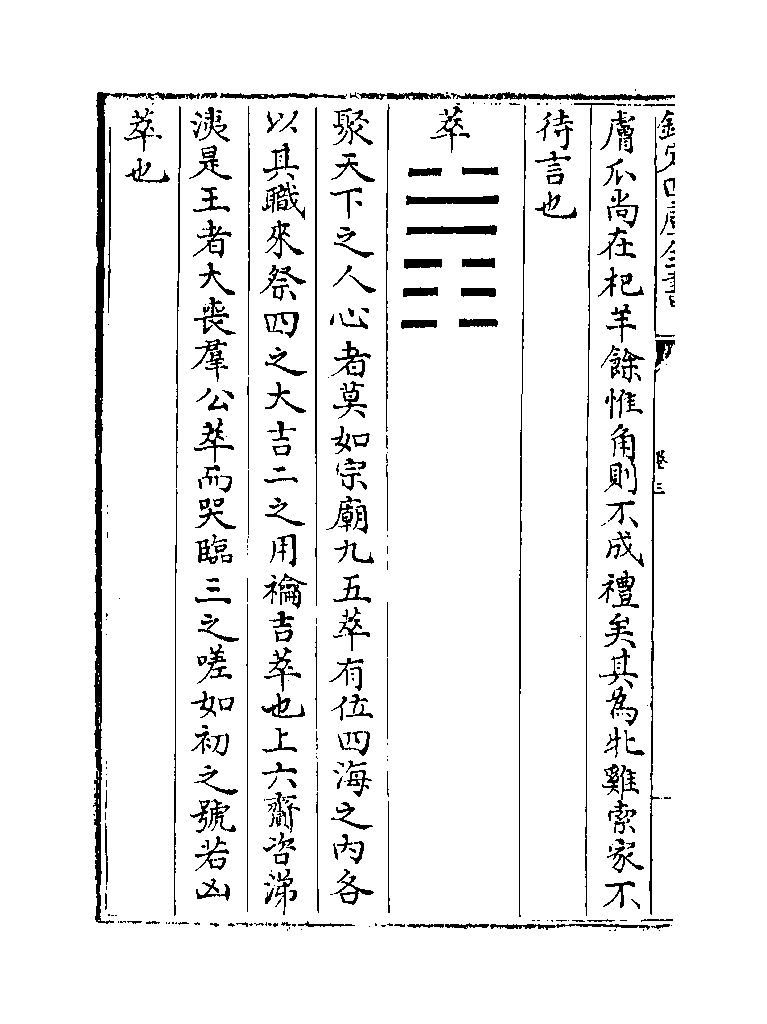 欽定四庫全書
卷三
膚瓜尚在杞羊餘惟角則不成禮矣其為牝雞索家不
待言也
萃
聚天下之人心者莫如宗廟九五萃有位四海之內各
以其職來祭四之大吉二之用禴吉萃也上六齎咨涕
洟是王者大喪羣公萃而哭臨三之嗟如初之號若凶
萃也